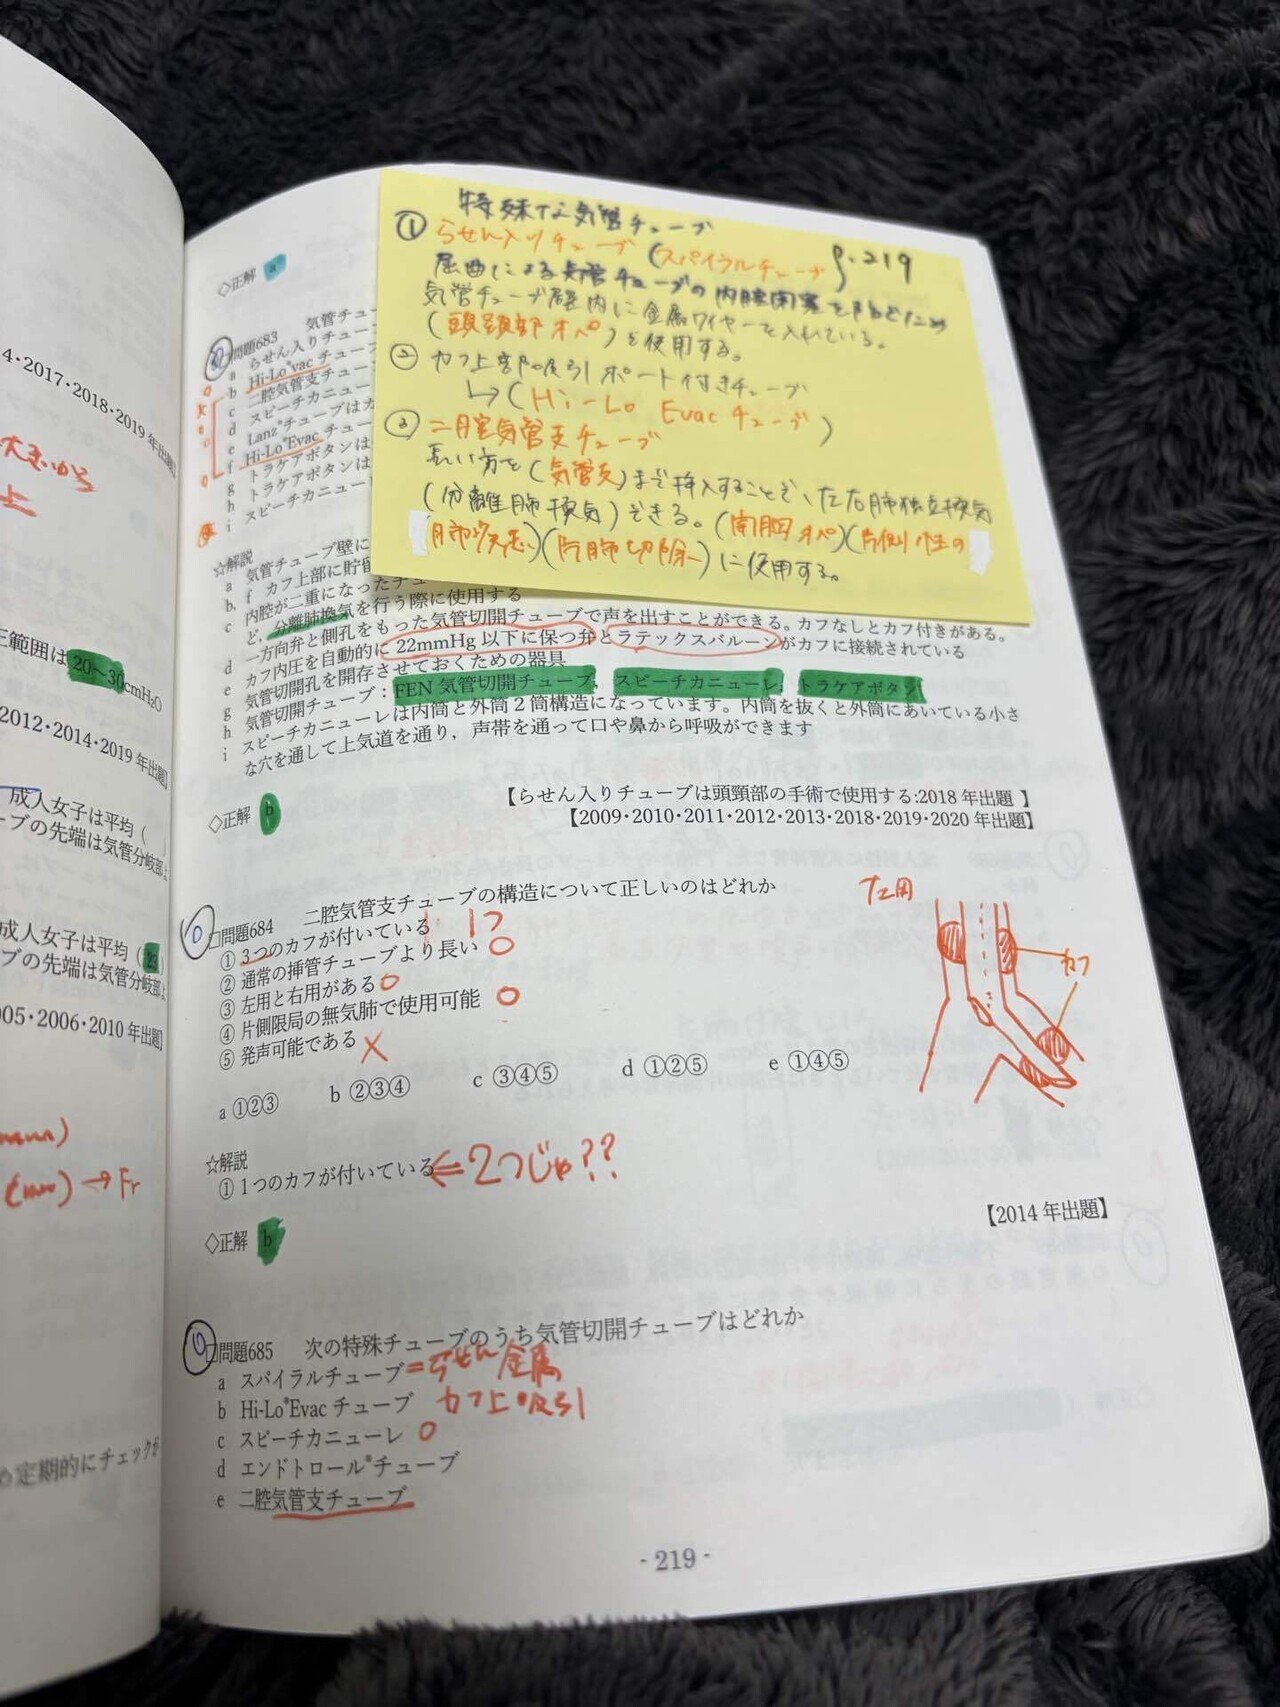 4・2017・2018・2019年出題】
大きいから
上
正範囲は20～30cmH₂O
2012・2014・2019年出題】
成人女子は平均（　）
ーブの先端は気管分岐部よ
成人女子は平均（
ブの先端は気管分岐部よ
005・2006・2010年出題】
(mm) → Fr
め定期的にチェックが
特殊な気管チューブ
p.219
① らせん入りチューブ（スパイラルチューブ
屈曲による気管チューブの内腔閉塞を防ぐため
気管チューブ壁内に金属ワイヤーを入れている。
（頭頚部オペ）を使用する。
② カフ上部吸引ポート付きチューブ
↳（Hi-Lo Evacチューブ）
③ 二腔気管支チューブ
長い方を（気管支）まで挿入することで、左右肺独立換気
（分離肺換気）できる。（開胸オペ）（片側性の
肺疾患）（片肺切除）に使用する。
◇正解 a
問題683 気管チュー
a らせん入りチュー
b Hi-Lo®Evacチュー
c 二腔気管支チュー
d スピーチカニュー
e Lanz®チューブはカ
f Hi-Lo®Evacチュー
g トラケアボタンは
h トラケアボタンは
i スピーチカニュー
☆解説
a 気管チューブ壁に
b, f カフ上部に貯留
c 内腔が二重になったチュー
ど、分離肺換気を行う際に使用する
d 一方向弁と側孔をもった気管切開チューブで声を出すことができる。カフなしとカフ付きがある。
e カフ内圧を自動的に22mmHg以下に保つ弁とラテックスバルーンがカフに接続されている
g 気管切開孔を開存させておくための器具
h 気管切開チューブ：FEN気管切開チューブ, スピーチカニューレ, トラケアボタン
i スピーチカニューレは内筒と外筒2筒構造になっています。内筒を抜くと外筒にあいている小さ
な穴を通して上気道を通り，声帯を通って口や鼻から呼吸ができます
◇正解 b
【らせん入りチューブは頭頸部の手術で使用する:2018年出題 】
【2009・2010・2011・2012・2013・2018・2019・2020年出題】
□問題684 二腔気管支チューブの構造について正しいのはどれか
① 3つのカフが付いている 1つ
② 通常の挿管チューブより長い ○
③ 左用と右用がある ○
④ 片側限局の無気肺で使用可能 ○
⑤ 発声可能である ×
a ①②③ b ②③④ c ③④⑤ d ①②⑤ e ①④⑤
左用
カフ
☆解説
① 1つのカフが付いている ⇐ 2つじゃ??
◇正解 b
【2014年出題】
□問題685 次の特殊チューブのうち気管切開チューブはどれか
a スパイラルチューブ = らせん 金属
b Hi-Lo®Evacチューブ カフ上吸引
c スピーチカニューレ ○
d エンドトロール®チューブ
e 二腔気管支チューブ
- 219 -